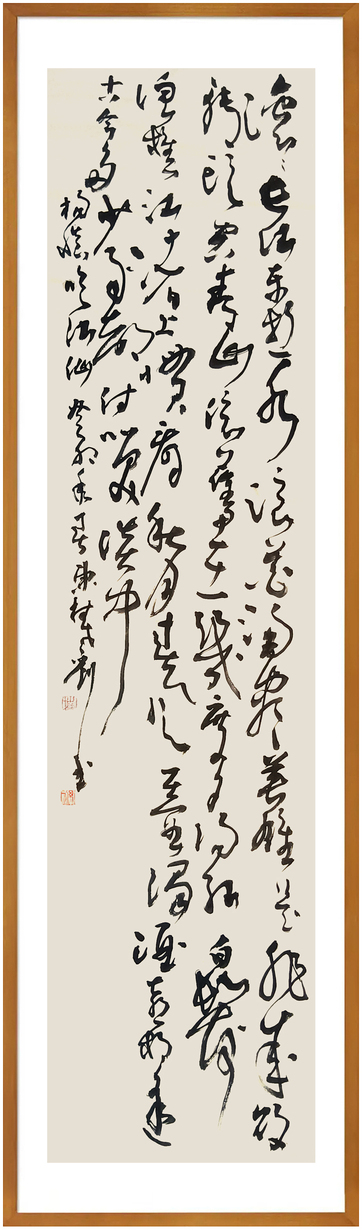 滚滚长江东逝水浪花淘尽英雄是非成败
转头空青山依旧在几度夕阳红白发
渔樵江渚上惯看秋月春风一壶浊酒喜相逢
古今多少事都付笑谈中
杨慎临江仙 癸卯年 书